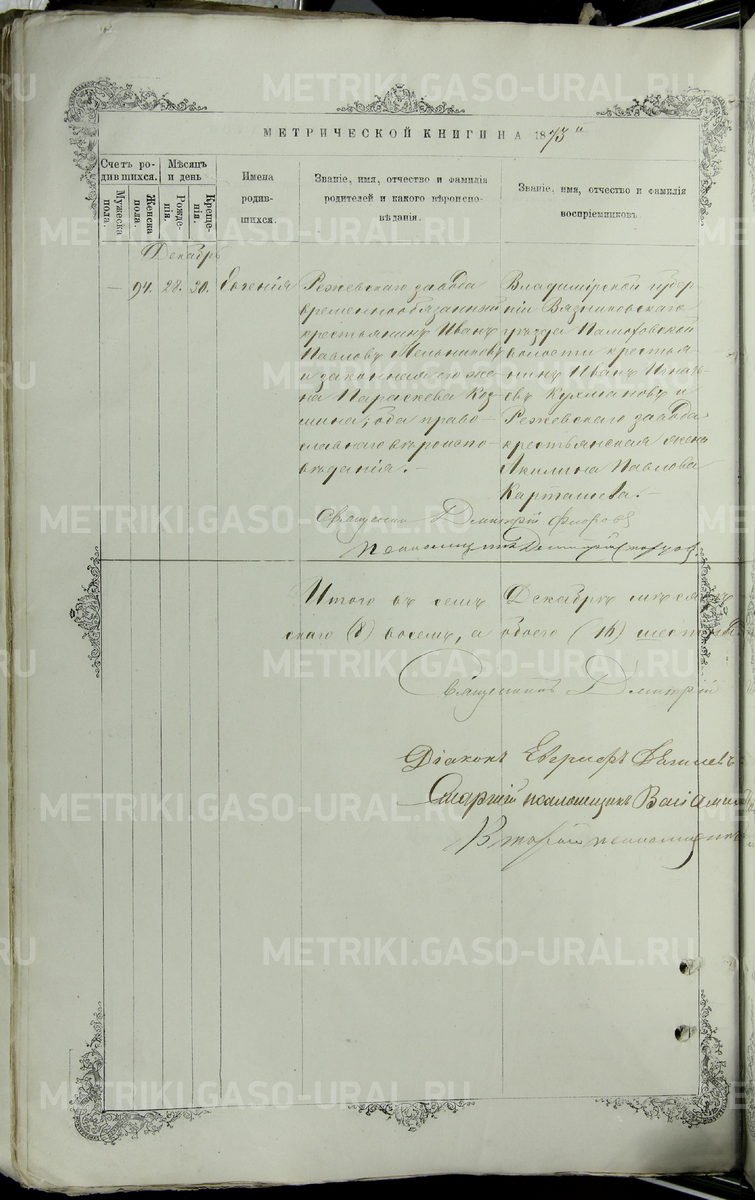 МЕТРИЧЕСКОЙ КНИГИ НА 1873 й
Счетъ ро-
дившихся.
Мужеска
пола.
Женска
пола.
Мѣсяцъ
и день
Рожде-
нія.
Креще-
нія.
Имена
родив-
шихся.
Званіе, имя, отчество и фамилія
родителей и какого вѣроиспо-
вѣданія.
Званіе, имя, отчество и фамилія
воспріемниковъ.
Декабрь
— 94. 28. 30. Евгенія
Режевскаго завода
временнообязанный
крестьянинъ Иванъ
Павловъ Мельниковъ
и законная его же-
на Параскева Коз-
мина; оба право-
славнаго вѣроиспо-
вѣданія. —
Владимірской губер-
ніи Вязниковскаго
уѣзда
волости крестья-
нинъ Иванъ Игнать-
евъ и
Режевскаго завода
крестьянская жена
Акилина Павлова
Карташева. —
Священникъ Димитрій Флоровъ
Псаломщикъ Димитрій
Итого въ семъ Декабрѣ мѣсяцѣ
скаго (8) восемь, а обоего (16)
Священникъ Димитрій
Діаконъ
Старшій псаломщикъ
Вторый псаломщикъ
METRIKI.GASO-URAL.RU